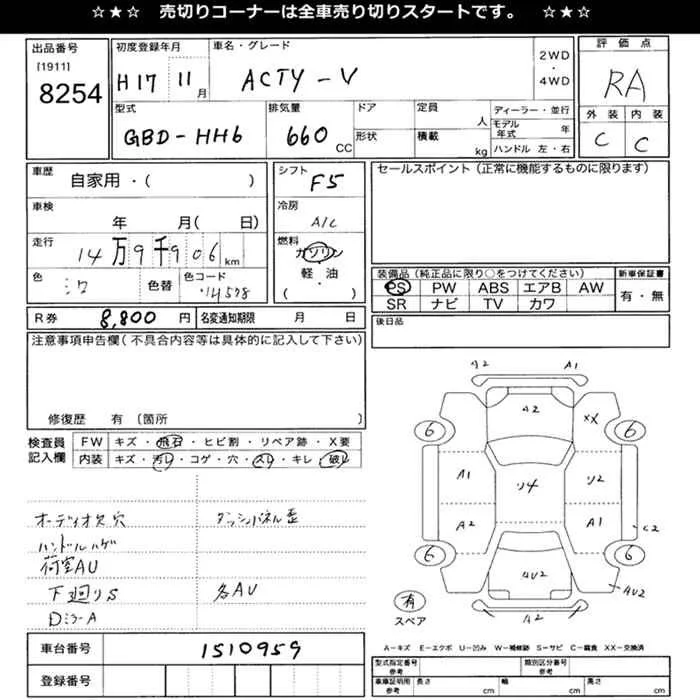 ☆★☆ 売切りコーナーは全車売り切りスタートです。 ☆★☆
出品番号
[1911]
8254
初度登録年月
H17 11月
車名・グレード
ACTY-V
2WD
・
4WD
評価点
RA
外装 内装
C C
型式
GBD-HH6
排気量
660 CC
ドア
形状
定員 人
積載 kg
ディーラー・並行
モデル年式 年
ハンドル 左・右
車歴
自家用・( )
車検
年 月( 日)
走行
14万9千906km
色
シロ
色替
色コード
シフト
F5
冷房
A/C
燃料
ガソリン
軽・油
・( )
セールスポイント(正常に機能するものに限ります)
装備品(純正品に限り○をつけてください)
PS PW ABS エアB AW
SR ナビ TV カワ
新車保証書
有・無
R券 8,800円 名変通知期限 月 日
後日品
注意事項申告欄(不具合内容等は具体的に記入して下さい)
修復歴 有〔箇所 〕
検査員記入欄
FW キズ・飛石・ヒビ割・リペア跡・X要
内装 キズ・汚レ・コゲ・穴・スレ・キレ・破レ
オーディオ欠穴 ダッシュパネル歪
ハンドルハゲ
荷室AU
下廻りS 各AU
DミラーA
A2 A1
A2 XX
6 6
A1 ソ4 ソ2
A2 A1 C2
6 6
4U2 4U2
A2
有
スペア
A−キズ E−エクボ U−凹み W−補修跡 S−サビ C−腐食 XX−交換済
車台番号 1510959
登録番号
型式指定番号 参考
類別区分番号 参考
車庫証明用 参考 長さ cm 幅 cm 高さ cm